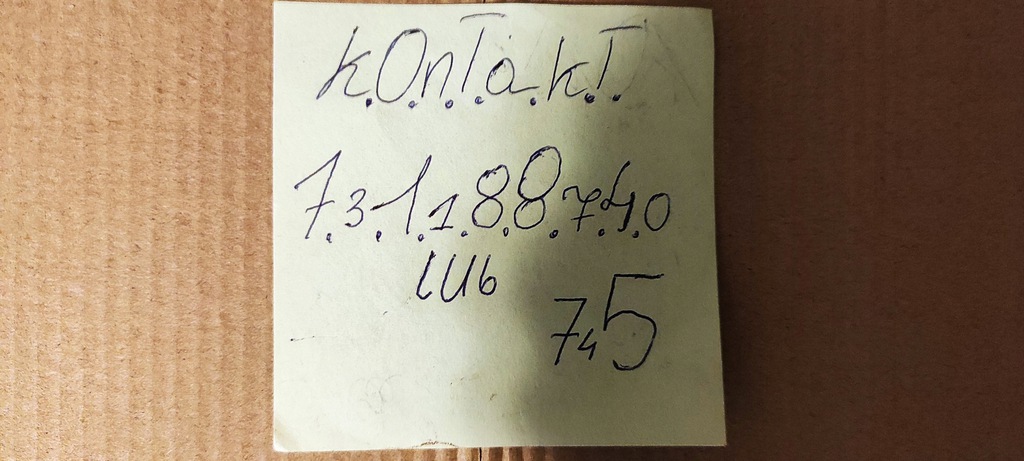 k.On.T.a.k.T.
7.3.1.1.8.8.7.4.0
lub
745